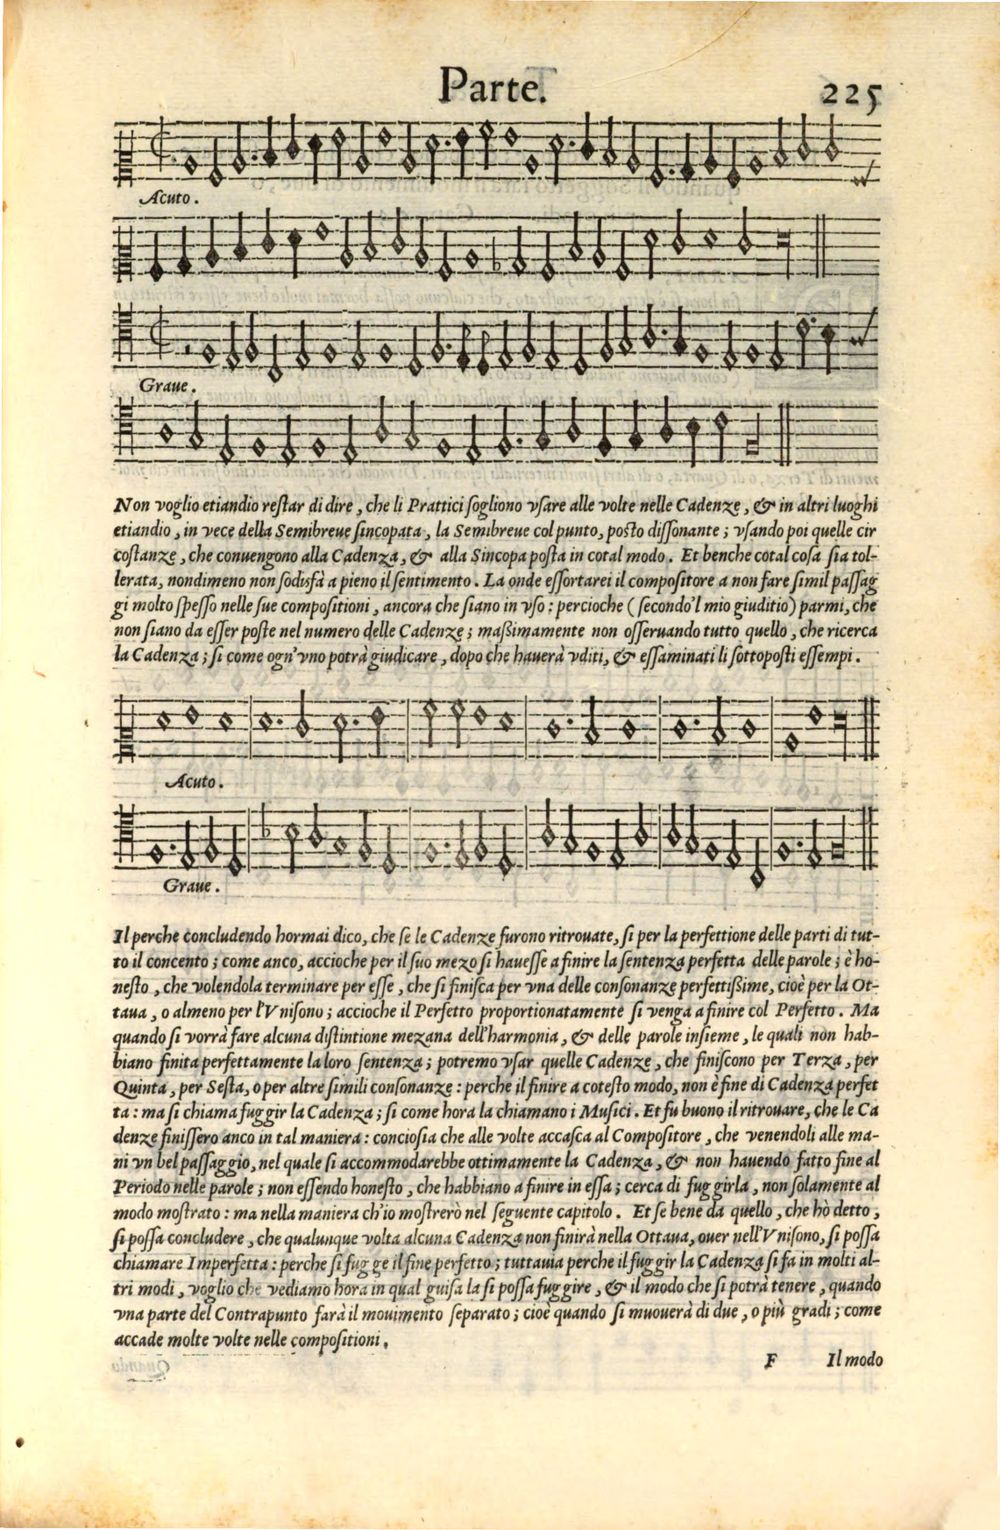 Parte.
225
Acuto.
Graue.
Non voglio etiandio reſtar di dire, che li Prattici ſogliono vſare alle volte nelle Cadenze, & in altri luoghi
etiandio, in vece della Semibreue ſincopata, la Semibreue col punto, poſto diſſonante; vſando poi quelle cir
coſtanze, che conuengono alla Cadenza, & alla Sincopa poſta in cotal modo. Et benche cotal coſa ſia tol-
lerata, nondimeno non ſodisfà a pieno il ſentimento. La onde eſſortarei il compoſitore a non fare ſimil paſſag
gi molto ſpeſſo nelle ſue compoſitioni, ancora che ſiano in vſo: percioche (ſecondo'l mio giuditio) parmi, che
non ſiano da eſſer poſte nel numero delle Cadenze; maßimamente non oſſeruando tutto quello, che ricerca
la Cadenza; ſi come ogn'vno potrà giudicare, dopo che hauerà vditi, & eſſaminati li ſottopoſti eſſempi.
Acuto.
Graue.
Il perche concludendo hormai dico, che ſe le Cadenze furono ritrouate, ſi per la perfettione delle parti di tut-
to il concento; come anco, accioche per il ſuo mezo ſi haueſſe a finire la ſentenza perfetta delle parole; è ho-
neſto, che volendola terminare per eſſe, che ſi finiſca per vna delle conſonanze perfettißime, cioè per la Ot-
taua, o almeno per l'Vniſono; accioche il Perfetto proportionatamente ſi venga a finire col Perfetto. Ma
quando ſi vorrà fare alcuna diſtintione mezana dell'harmonia, & delle parole inſieme, le quali non hab-
biano finita perfettamente la loro ſentenza; potremo vſar quelle Cadenze, che finiſcono per Terza, per
Quinta, per Seſta, o per altre ſimili conſonanze: perche il finire a coteſto modo, non è fine di Cadenza perfet
ta: ma ſi chiama fuggir la Cadenza; ſi come hora la chiamano i Muſici. Et fù buono il ritrouare, che le Ca
denze finiſſero anco in tal maniera: concioſia che alle volte accaſca al Compoſitore, che venendoli alle ma-
ni vn bel paſſaggio, nel quale ſi accommodarebbe ottimamente la Cadenza, & non hauendo fatto fine al
Periodo nelle parole; non eſſendo honeſto, che habbiano a finire in eſſa; cerca di fuggirla, non ſolamente al
modo moſtrato: ma nella maniera ch'io moſtrerò nel ſeguente capitolo. Et ſe bene da quello, che hò detto,
ſi poſſa concludere, che qualunque volta alcuna Cadenza non finirà nella Ottaua, ouer nell'Vniſono, ſi poſſa
chiamare Imperfetta: perche ſi fugge il fine perfetto; tuttauia perche il fuggir la Cadenza ſi fa in molti al-
tri modi, voglio che vediamo hora in qual guiſa la ſi poſſa fuggire, & il modo che ſi potrà tenere, quando
vna parte del Contrapunto farà il mouimento ſeparato; cioè quando ſi muouerà di due, o più gradi; come
accade molte volte nelle compoſitioni.
F
Il modo